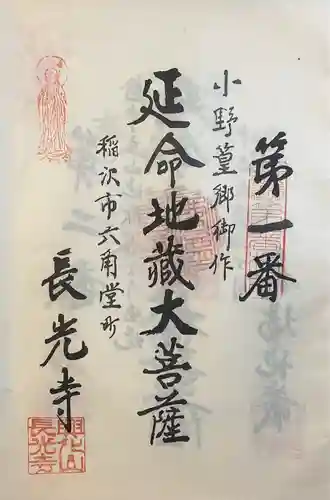 第一番
小野篁卿御作
延命地藏大菩薩
稲沢市六角堂町
長光寺